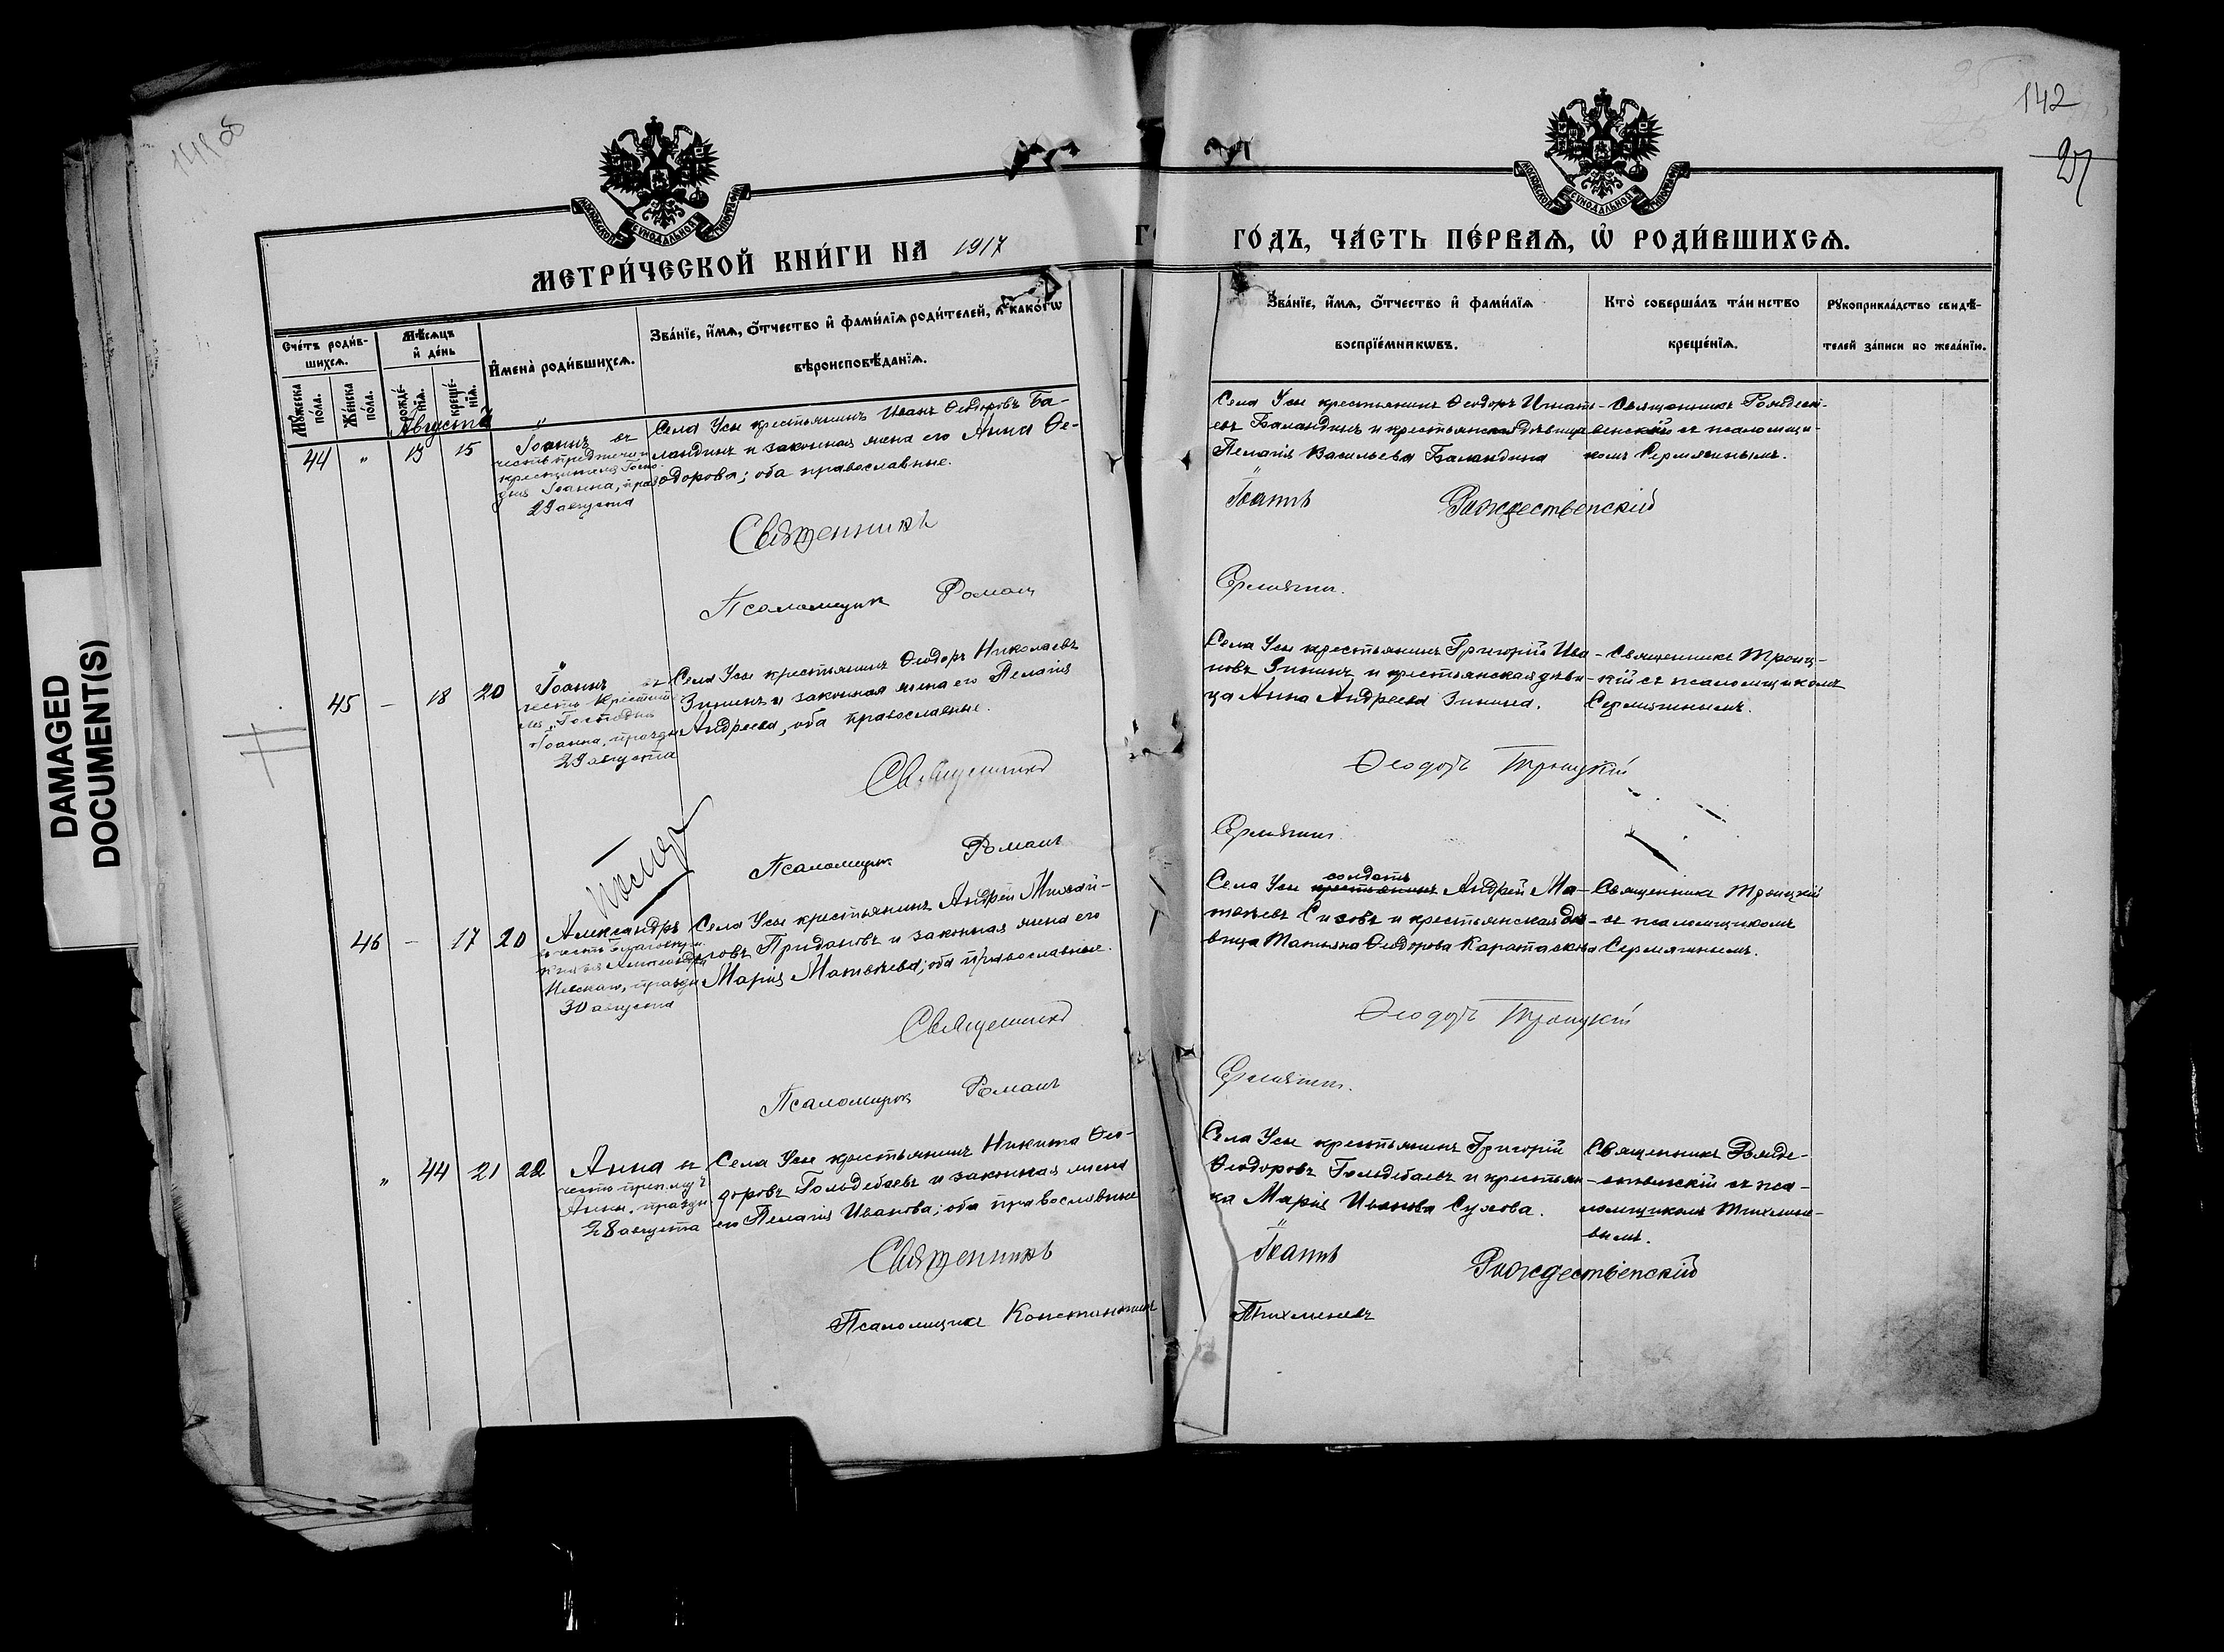 142
27
DAMAGED DOCUMENT(S)
МЕТРИ́ЧЕСКОЙ КНИ́ГИ НА 1917
ГО́ДЪ, ЧА́СТЬ ПЕ́РВАѦ, Ѽ РОДИ́ВШИХСѦ.
Сче́тъ роди́в-
шихсѧ.
Мꙋ́жеска по́ла.
Же́нска по́ла.
Мѣ́сѧцъ
и҆ де́нь
рожде́-нїѧ.
креще́-нїѧ.
И҆мена̀ роди́вшихсѧ.
Зва́нїе, и҆́мѧ, ѻ҆́тчество и҆ фами́лїѧ роди́телей, и҆ како́гѡ
вѣроисповѣ́данїѧ.
Зва́нїе, и҆́мѧ, ѻ҆́тчество и҆ фами́лїѧ
воспрїе́мникѡвъ.
Кто̀ соверша́лъ та́инство
креще́нїѧ.
Рꙋкоприкла́дство свидѣ́-
телей за́писи по жела́нїю.
Августа
44 " 13 15
Іоаннъ въ
честь предтечи и
крестителя Госпо-
дня Іоанна, праз
29 августа
Села Усы крестьянинъ Иванъ Ѳеодоровъ Ба-
ландинъ и законная жена его Анна Ѳе-
одорова; оба православные.
Села Усы крестьянинъ Ѳеодоръ Игнать-
евъ Баландинъ и крестьянская дѣвица
Пелагія Васильева Баландина
Священникъ Рождест-
венскій съ псаломщи-
комъ Сермягинымъ.
Священникъ Іоаннъ Рождественскій
Псаломщик Роман Сермягин.
45 - 18 20
Іоаннъ въ
честь Крестит
ля Господня
Іоанна, праздн
29 августа
Села Усы крестьянинъ Ѳеодоръ Николаевъ
Зининъ и законная жена его Пелагія
Андреева, оба православные.
Села Усы крестьянинъ Григорій Ива-
новъ Зининъ и крестьянская дѣви-
ца Анна Андреева Зинина.
Священникъ Троиц-
кій съ псаломщикомъ
Сермягинымъ.
Священникъ Ѳеодоръ Троицкій
Псаломщик Романъ Сермягин.
46 - 17 20
Александръ
въ честь благовѣрн.
князя Александра
Невскаго, праздн
30 августа
Села Усы крестьянинъ Андрей Михай-
ловъ Придановъ и законная жена его
Марія Матвѣева; оба православные.
солдатъ
Села Усы крестьянинъ Андрей Ма-
твѣевъ Сизовъ и крестьянская дѣ-
вица Татьяна Ѳеодорова Каратаева
Священникъ Троицкій
съ псаломщикомъ
Сермягинымъ.
Священникъ Ѳеодоръ Троицкій
Псаломщик Романъ Сермягин.
" 44 21 22
Анна въ
честь препмуч
Анны, праздн
28 августа
Села Усы крестьянинъ Никита Ѳео-
доровъ Гольдебаевъ и законная жена
его Пелагія Иванова; оба православные
Села Усы крестьянинъ Григорій
Ѳеодоровъ Гольдебаевъ и крестьян-
ка Марія Иванова Сухова.
Священникъ Рожде-
ственскій съ пса-
ломщикомъ Тихмене-
вымъ.
Священникъ Іоаннъ Рождественскій
Псаломщикъ Константинъ Тихменевъ